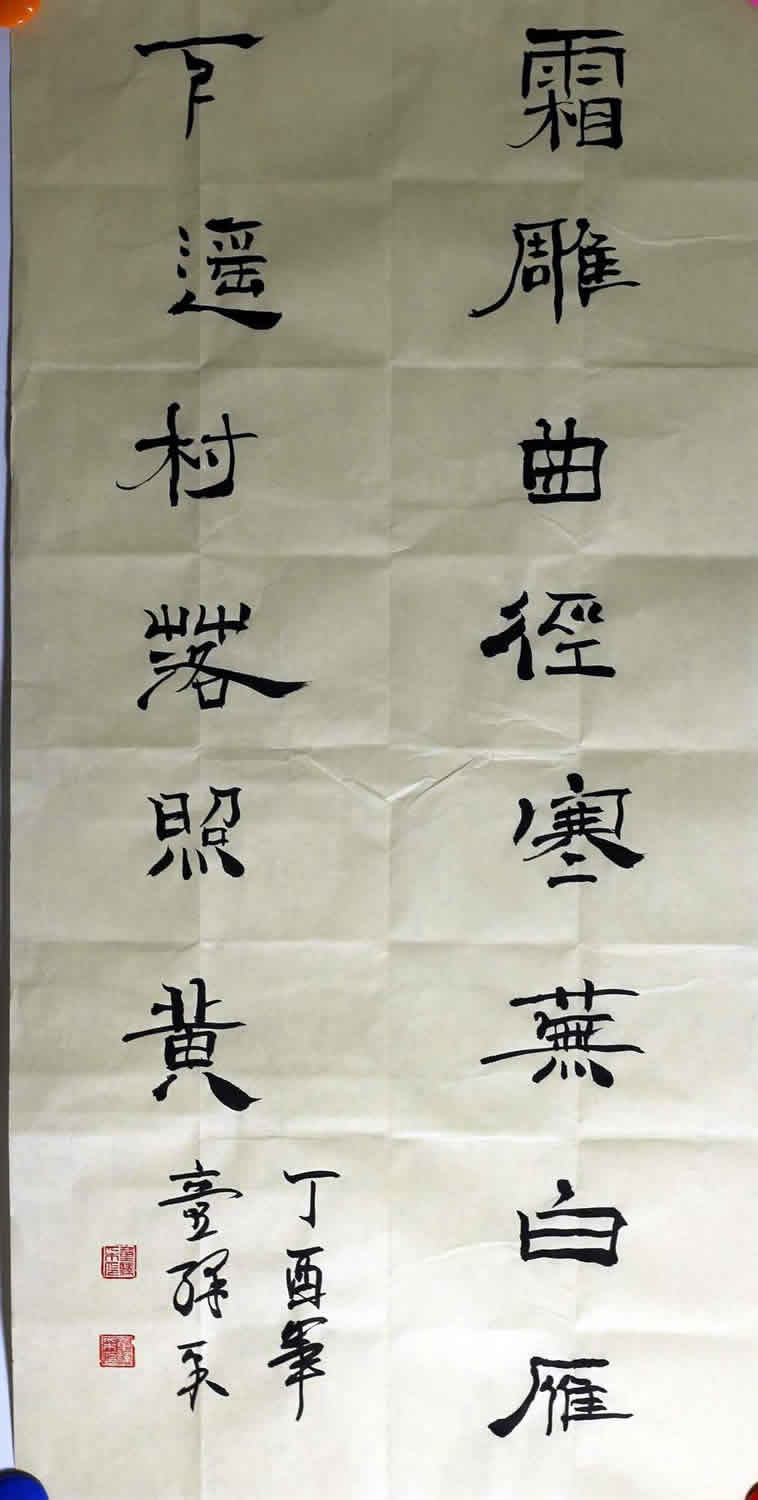 霜雕曲徑寒蕪白雁
下遥村落照黄
丁酉